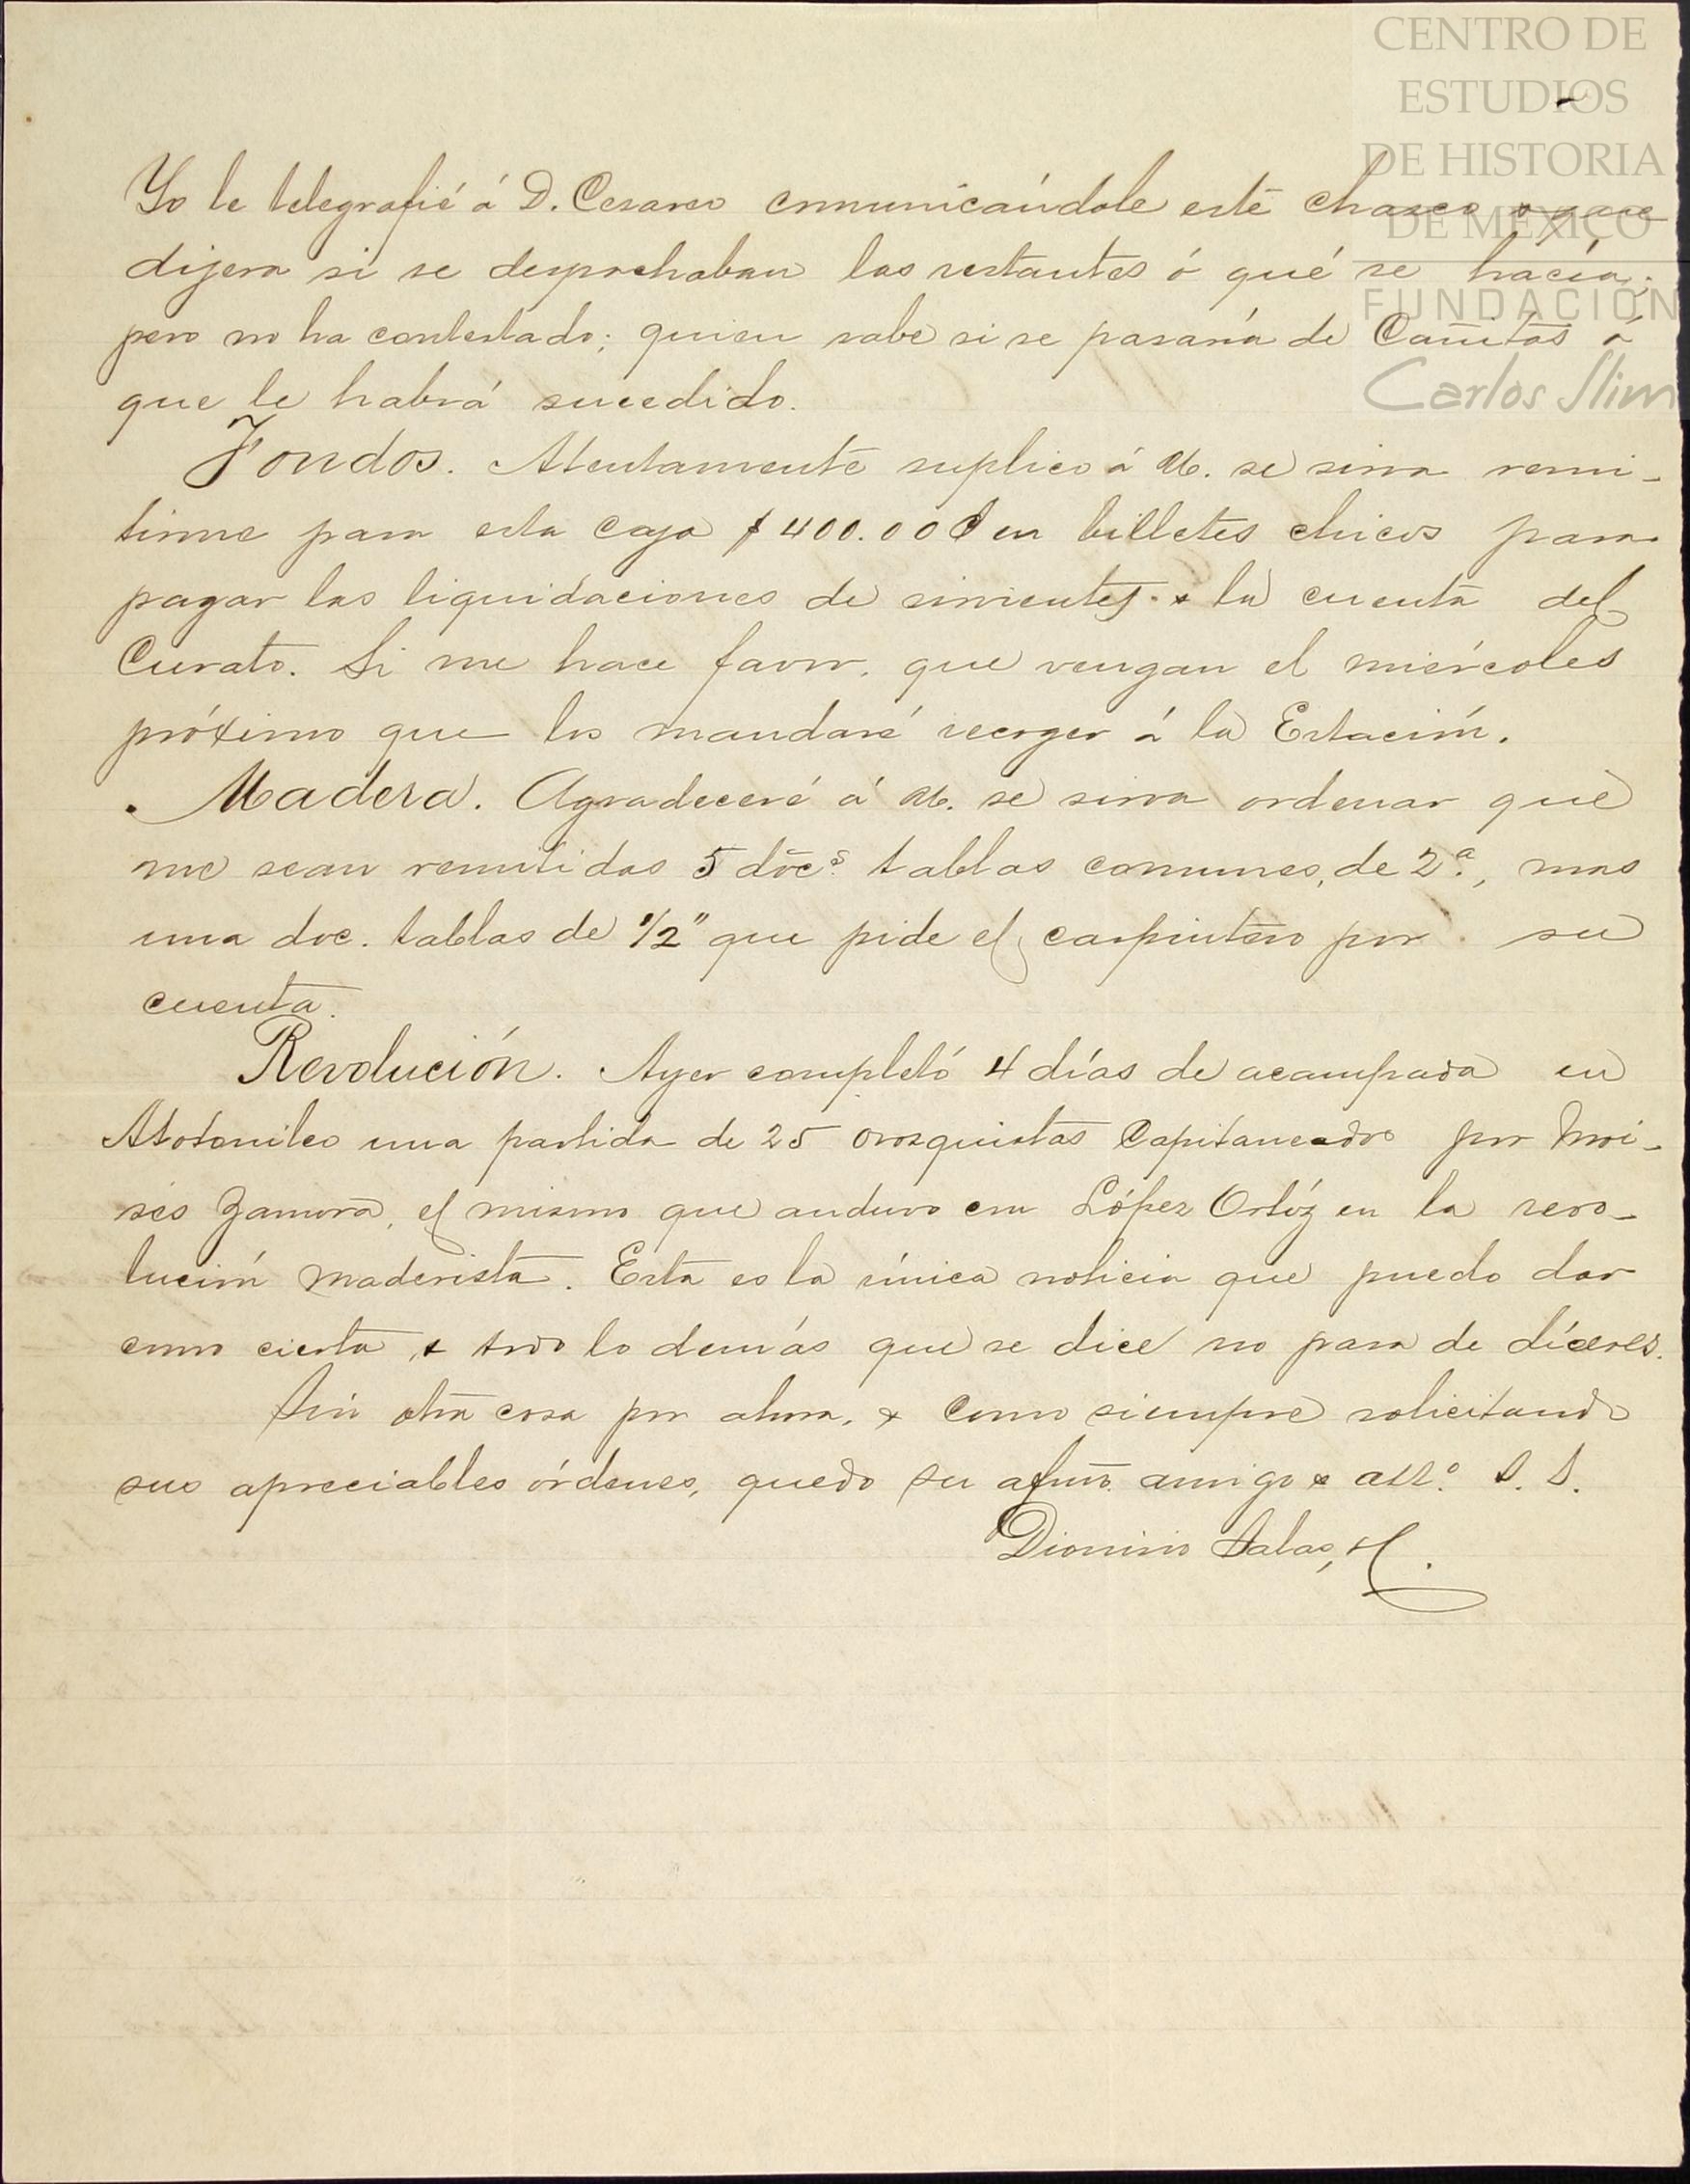 CENTRO DE
ESTUDIOS
DE HISTORIA
DE MÉXICO
FUNDACIÓN
Carlos Slim
Yo le telegrafié á D. Cesareo comunicándole este chasco y que
dijera si se desprohaban los restantes ó qué se hacía;
pero no ha contestado; quien sabe si se pasaría de Cañitas ó
que le habrá sucedido.
Fondos. Atentamente suplico á U. se sirva remi-
tirme para esta caja $400.00 en billetes chicos para
pagar las liquidaciones de sirvientes & la cuenta del
Curato. Si me hace favor, que vengan el miércoles
próximo que los mandaré recoger á la Estación.
Madera. Agradeceré á U. se sirva ordenar que
me sean remitidas 5 docs. tablas comunes, de 2a., mas
una doc. tablas de 1/2" que pide el carpintero por su
cuenta.
Revolución. Ayer completó 4 días de acampada en
Atotonilco una partida de 25 orozquistas Capitaneados por Moi-
sés Zamora, el mismo que anduvo con López Ortíz en la revo-
lución maderista. Esta es la única noticia que puedo dar
como cierta & todo lo demás que se dice no pasa de díceres.
Sin otra cosa por ahora, & como siempre solicitando
sus apreciables órdenes, quedo su afmo. amigo & atto. S. S.
Dionisio Salas, H.